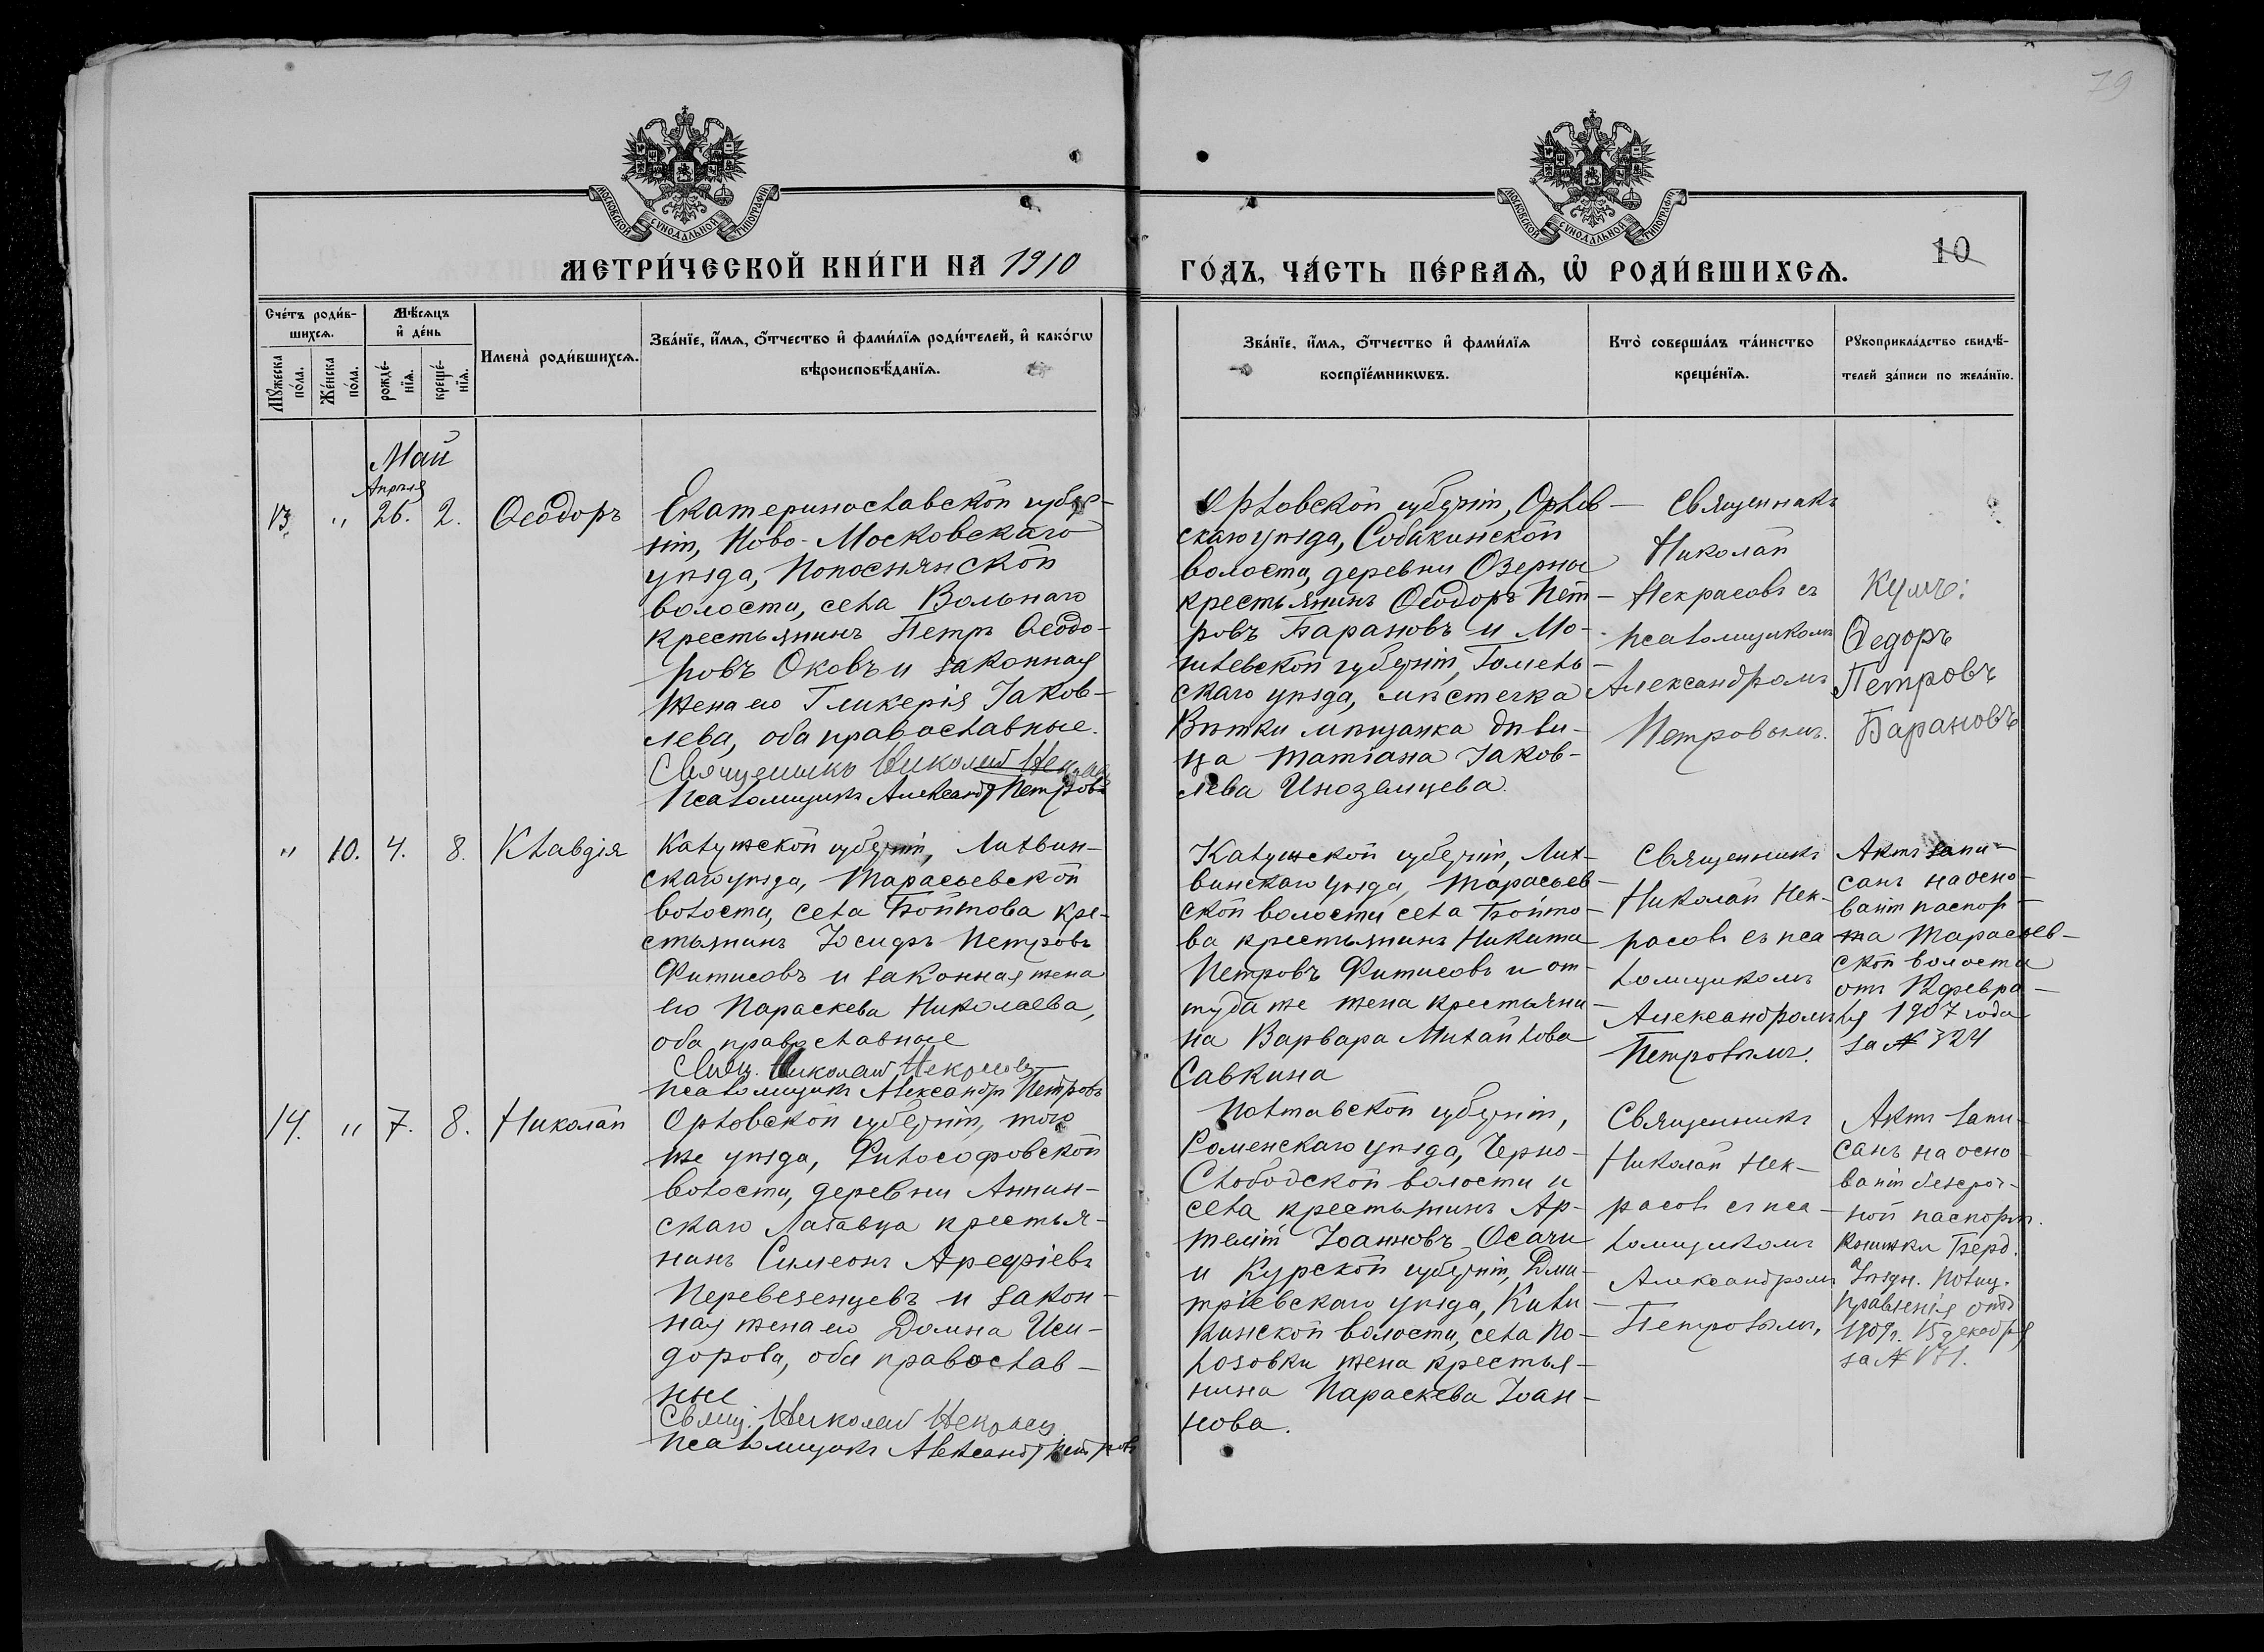 79
МОСКОВСКОЙ СУНОДАЛЬНОЙ ТИПОГРАФИИ
МОСКОВСКОЙ СУНОДАЛЬНОЙ ТИПОГРАФИИ
МЕТРИ́ЧЕСКОЙ КНИ́ГИ НА 1910
ГО́ДЪ, ЧА́СТЬ ПЕ́РВАѦ, Ѡ҆ РОДИ́ВШИХСѦ.
10
Сче́тъ роди́в-
шихсѧ.
Мꙋ́жеска
по́ла.
Же́нска
по́ла.
Мѣ́сѧцъ
и҆ де́нь
рожде́-
нїѧ.
креще́-
нїѧ.
Имена̀ роди́вшихсѧ.
Зва́нїе, и҆́мѧ, ѻ҆́тчество и҆ фами́лїѧ роди́телей, и҆ како́гѡ
вѣроисповѣ́данїѧ.
Зва́нїе, и҆́мѧ, ѻ҆́тчество и҆ фами́лїѧ
воспрїе́мникѡвъ.
Кто̀ соверша́лъ та́инство
креще́нїѧ.
Рꙋкоприкла́дство свидѣ́-
телей за́писи по жела́нїю.
Май
Апрѣля
13. " 26. 2. Ѳеодоръ
Екатеринославской губер-
ніи, Ново-Московскаго
уѣзда, Попоснянской
волости, села Вольнаго
крестьянинъ Петръ Ѳеодо-
ровъ Оковъ и законная
жена его Гликерія Іаков-
лева, оба православные.
Священникъ Николай
Псаломщикъ Александръ Петровъ
Орловской губерніи, Орлов-
скаго уѣзда, Собакинской
волости, деревни Озерны
крестьянинъ Ѳеодоръ Пет-
ровъ Барановъ и Мо-
гилевской губерніи, Гомель-
скаго уѣзда, мѣстечка
Вѣтки мѣщанка дѣви-
ца Татіана Іаков-
лева Иноземцева.
Священникъ
Николай
Некрасовъ съ
псаломщикомъ
Александромъ
Петровымъ.
Кумъ:
Ѳедоръ
Петровъ
Барановъ
" 10. 4. 8. Клавдія
Калужской губерніи, Лихвин-
скаго уѣзда, Тарасьевской
волости, села Бойтова кре-
стьянинъ Іосифъ Петровъ
Фитисовъ и законная жена
его Параскева Николаева,
оба православные
Свящ. Николай Некрасовъ
Псаломщикъ Александръ Петровъ
Калужской губерніи, Лих-
винскаго уѣзда, Тарасьев-
ской волости села Бойто-
ва крестьянинъ Никита
Петровъ Фитисовъ и от-
туда же жена крестьяни-
на Варвара Михайлова
Савкина
Священникъ
Николай Нек-
расовъ съ пса-
ломщикомъ
Александромъ
Петровымъ.
Актъ запи-
санъ на осно-
ваніи паспор-
та Тарасьев-
ской волости
отъ февра-
ля 1907 года
за № 324
14. " 7. 8. Николай
Орловской губерніи, того
же уѣзда, Философовской
волости, деревни Аннин-
скаго крестья-
нинъ Симеонъ Арефіевъ
Перевезенцевъ и закон-
ная жена его Домна Иси-
дорова, оба православ-
ные
Свящ. Николай
Псаломщикъ Александръ Петровъ
Полтавской губерніи,
Роменскаго уѣзда, Черно-
Слободской волости и
села крестьянинъ Ар-
темій Іоанновъ Осачи
и Курской губерніи, Дми-
тріевскаго уѣзда, Кили-
кинской волости, села По-
лозовки жена крестья-
нина Параскева Іоан-
нова.
Священникъ
Николай Нек-
расовъ съ пса-
ломщикомъ
Александромъ
Петровымъ.
Актъ запи-
санъ на осно-
ваніи безсроч-
ной паспортн.
книжки Берд.
Уѣздн. Полиц.
правленія отъ
1909г. 15 декабря
за №